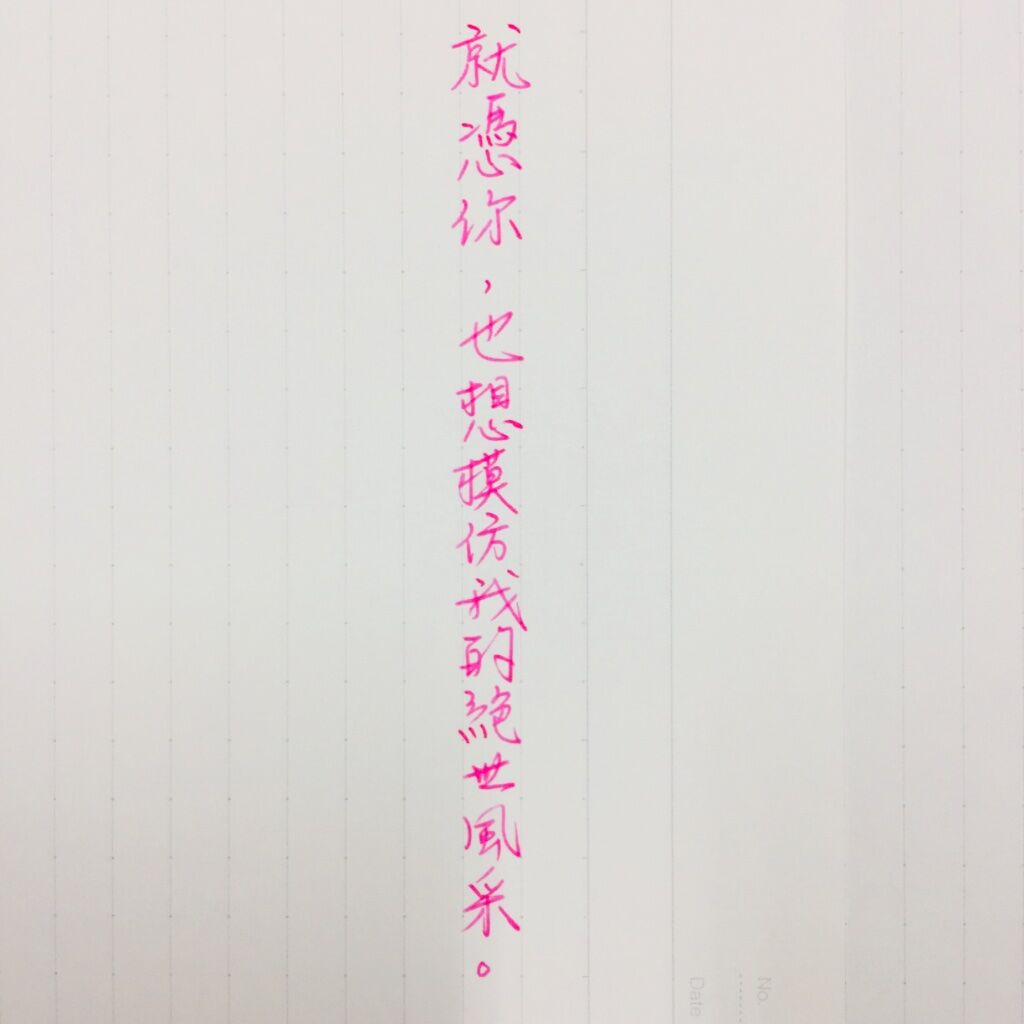 就憑你，也想模仿我的絕世風采。
No.
Date